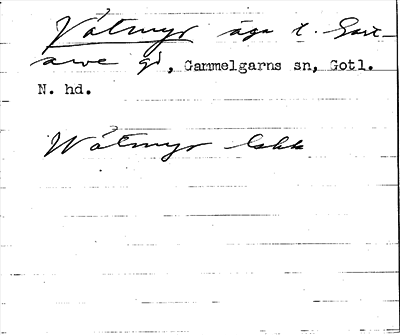 Våtmyr äga t. Gart-
arve gd, Gammelgarns sn, Gotl.
N. hd.
Wåtmyr